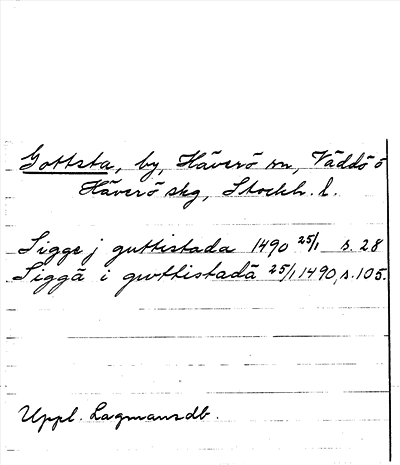 Gottsta, by, Häverö sn, Väddö o
Häverö skg, Stockh. l.
Sigge j guttistada 1490 25/1 s. 28
Siggä i gwttistadä 25/1 1490, s. 105.
Uppl. Lagmansdb.